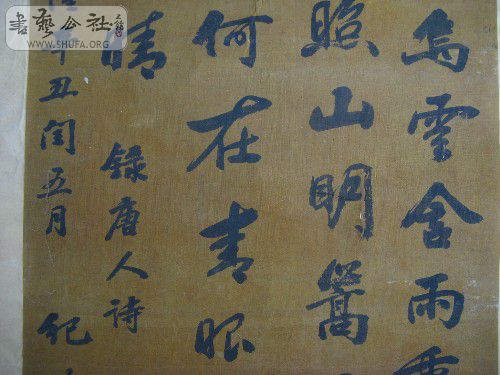 書藝公社
WWW.SHUFA.ORG
烏雲含雨重
照山明
何在青眼
晴
録唐人詩
丑閏五月 紀